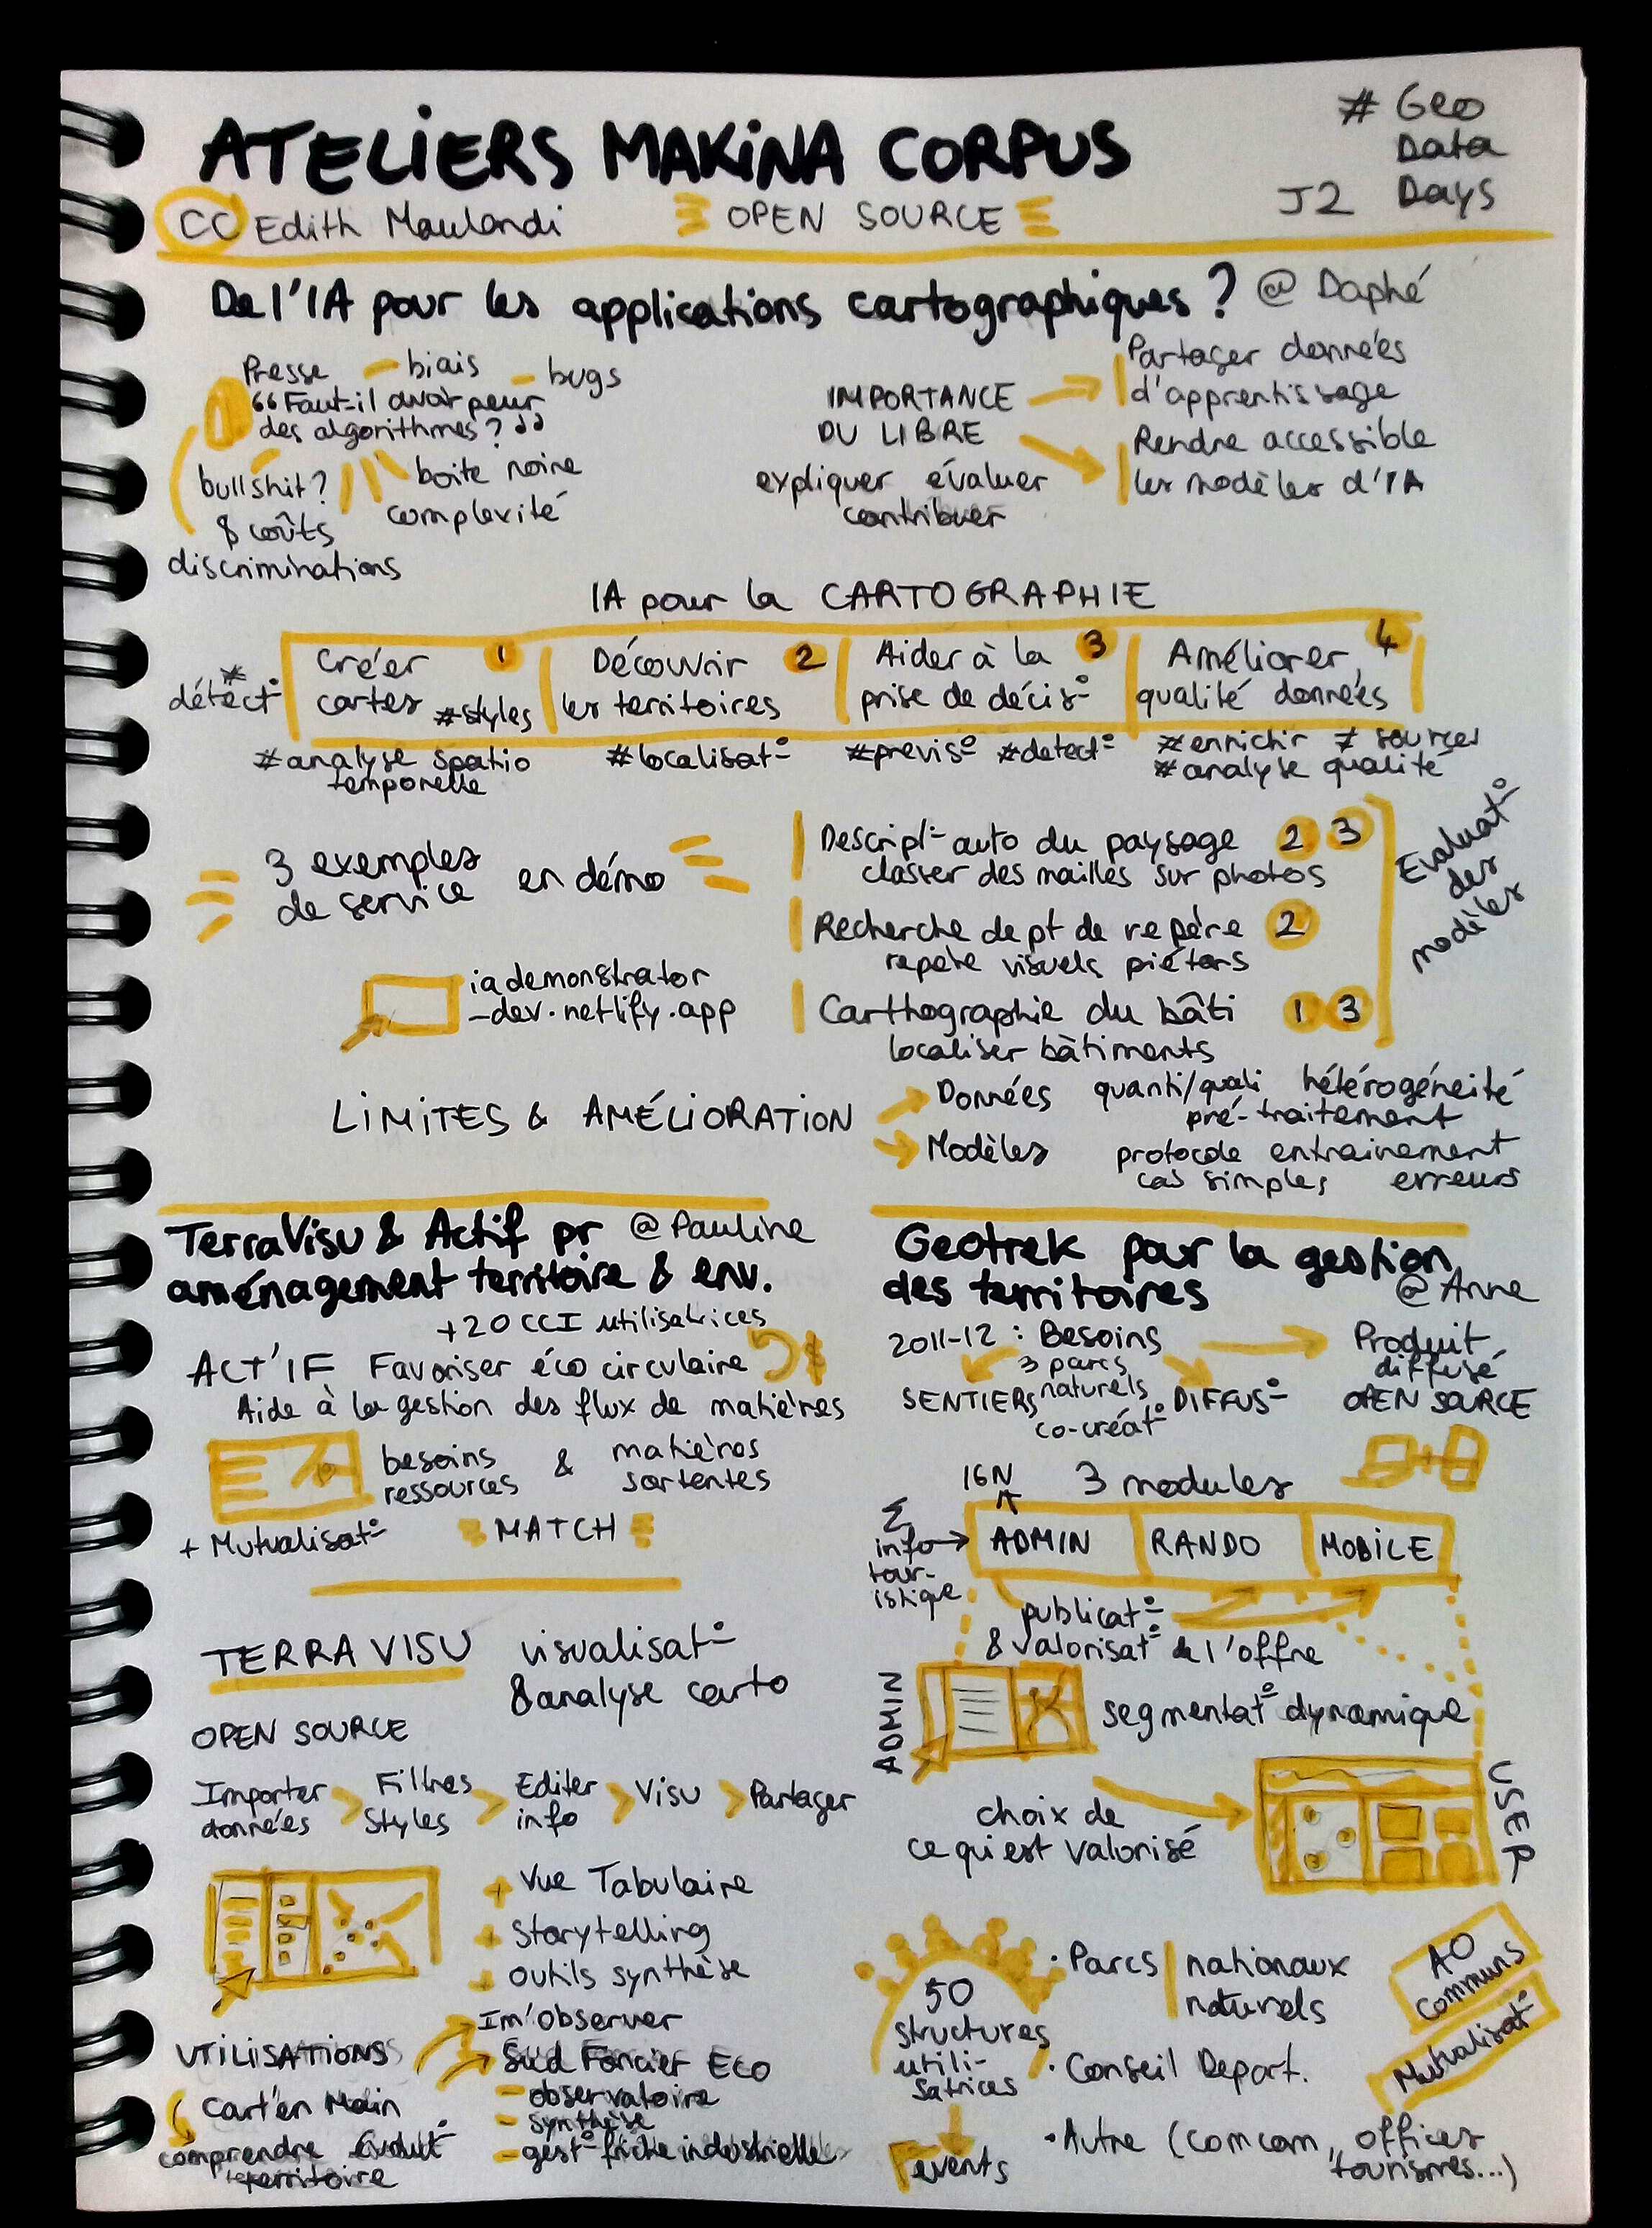 ATELIERS MAKINA CORPUS
# Geo
Data
J2 Days
CC Edith Maulandi
OPEN SOURCE
De l'IA pour les applications cartographiques ? @ Daphé
Presse
biais
bugs
"Faut-il avoir peur
des algorithmes ?"
bullshit ?
boite noire
& coûts
complexité
discriminations
IMPORTANCE
DU LIBRE
expliquer évaluer
contribuer
Partager données
d'apprentissage
Rendre accessible
les modèles d'IA
IA pour la CARTOGRAPHIE
# détect°
Créer 1
cartes #styles
Découvrir 2
les territoires
Aider à la 3
prise de décis°
Améliorer 4
qualité données
#analyse spatio
temporelle
#localisat°
#prévis° #detect°
#enrichir ≠ sources
#analyse qualité
3 exemples
de service en démo
iademonstrator
-dev.netlify.app
Descript° auto du paysage 2 3
classer des mailles sur photos
Recherche de pt de repère 2
repère visuels piétons
Carthographie du bâti 1 3
localiser bâtiments
Evaluat°
des
modèles
LIMITES & AMÉLIORATION
Données quanti/quali hétérogénéité
pré-traitement
Modèles protocole entrainement
cas simples erreurs
TerraVisu & Actif pr @Pauline
aménagement territoire & env.
+20 CCI utilisatrices
ACT'IF Favoriser éco circulaire $
Aide à la gestion des flux de matières
besoins & matières
ressources sortentes
+ Mutualisat°
MATCH
TERRA VISU visualisat°
& analyse carto
OPEN SOURCE
Importer
données
Filtres
Styles
Editer
info
Visu
Partager
+ Vue Tabulaire
+ Storytelling
+ outils synthèse
UTILISATIONS
Im'Observer
Sud Foncier Eco
- observatoire
- synthèse
- gest° friche industrielle
Cart'en Main
comprendre évolut°
territoire
Geotrek pour la gestion
des territoires @Anne
2011-12 : Besoins
3 parcs
naturels
SENTIERS
DIFFUS°
co-créat°
Produit
diffusé
OPEN SOURCE
16N
3 modules
Σ
info
tour-
istique
ADMIN
RANDO
MOBILE
publicat°
& valorisat° de l'offre
ADMIN
segmentat° dynamique
choix de
ce qui est valorisé
USER
50
structures
utili-
satrices
Events
• Parcs nationaux
naturels
• Conseil Depart.
• Autre (comcom, offices
tourismes...)
AO
communs
Mutualisat°